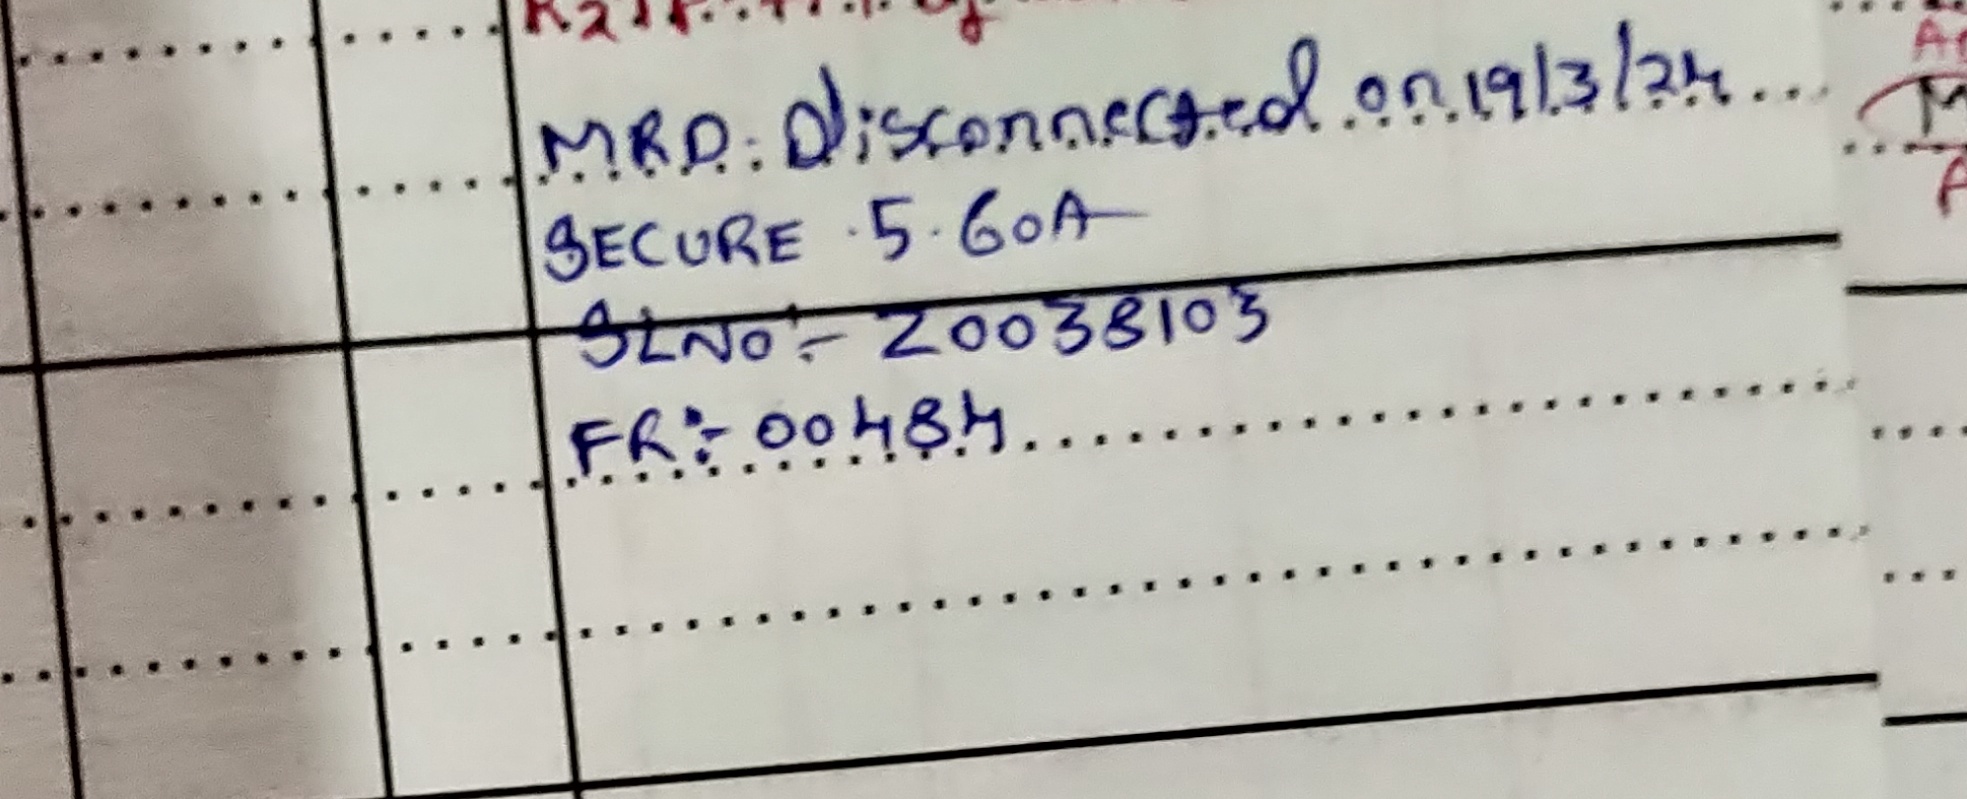 MRD: Disconnected on 19/3/24
SECURE 5-60A
SLNO:- 20038103
FR:- 00484